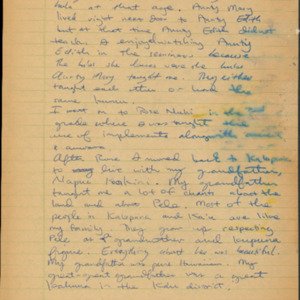 hula at that age. Aunty Mary
lived right next door to Aunty Edith
but at that time Aunty Edith did not
teach. I enjoy watching Aunty
Edith in the because
the hula she knows were the hulas
Aunty Mary taught me. They either
taught each other or had the
same kumu.
I went to Rose in the
grades where I was taught the
use of implements along with
& anwara
After Rose I moved back to Kalapana
to live with my grandfather,
. My grandfather
taught me a lot of chants about the
land and about Pele. Most of the
people in Kalapana and Ka'u are like
my family. They grew up respecting
Pele as a grandmother and kupuna
figure. Everything about her was beautiful.
My grandfather was pure Hawaiian. My
great-great grandfather was a great
kahuna in the Kahu district.